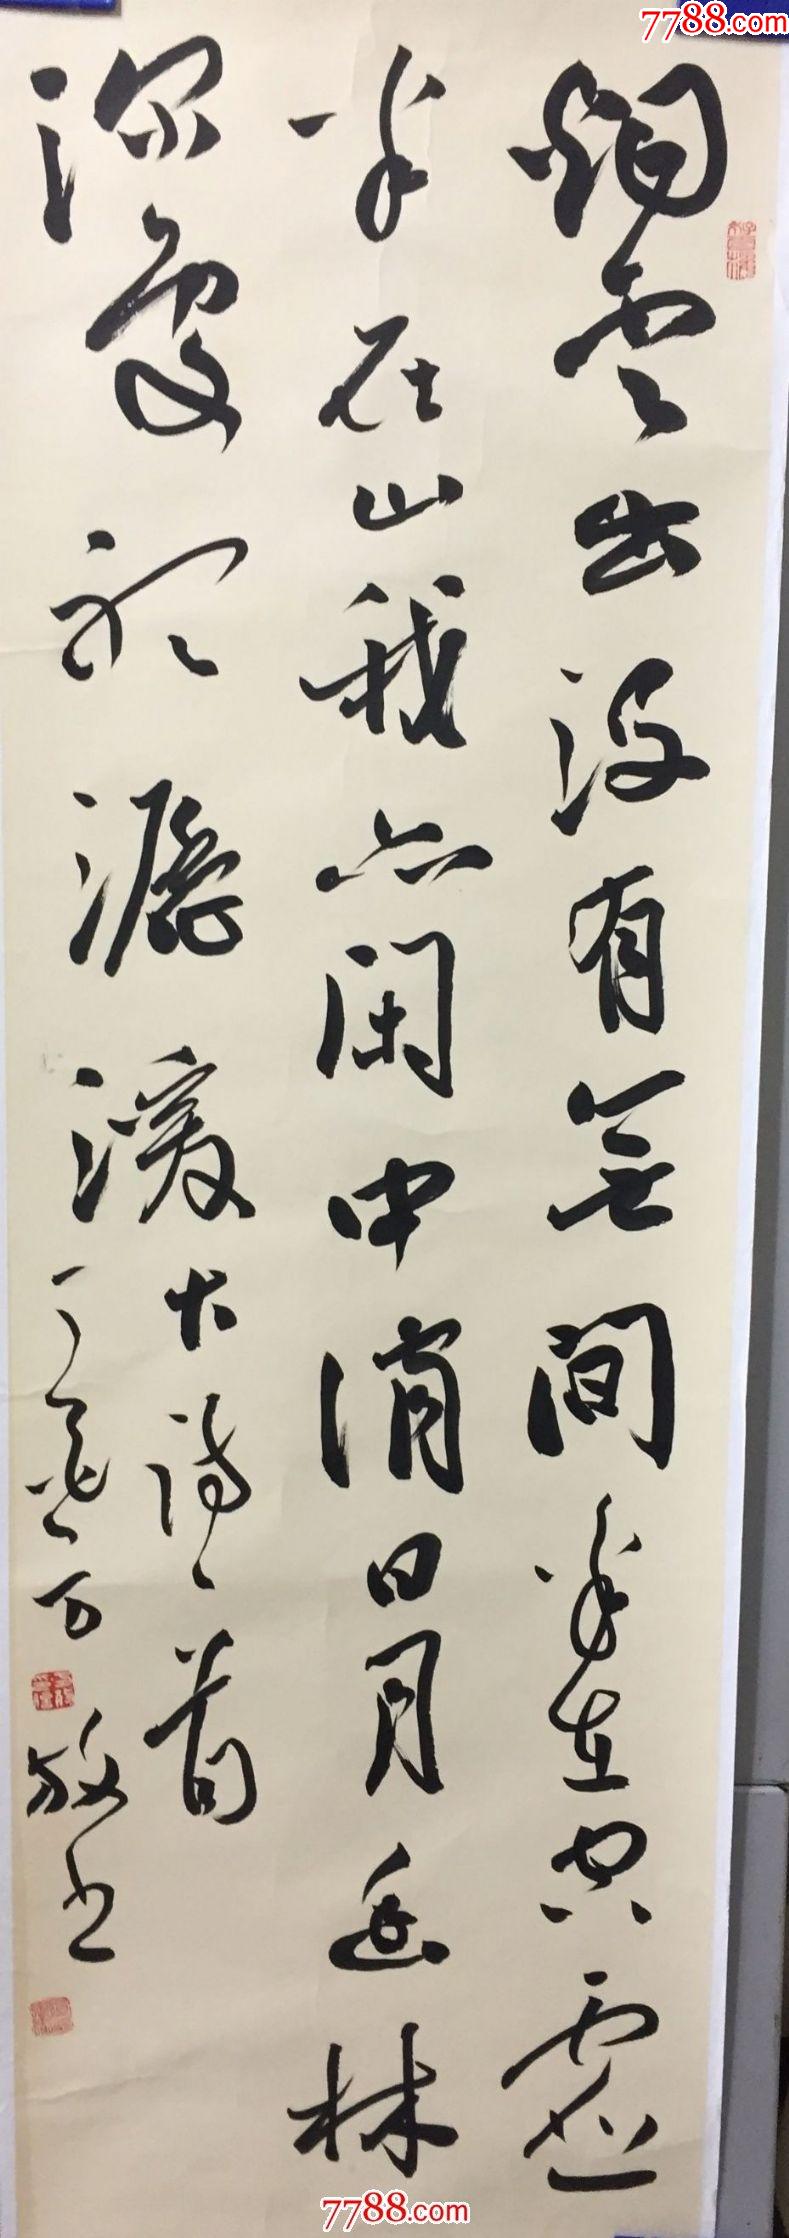 7788.com
烟云出没有无间半在空虚
半在山我亦闲中消日月幽林
深处听潺湲古诗一首
放书
7788.com